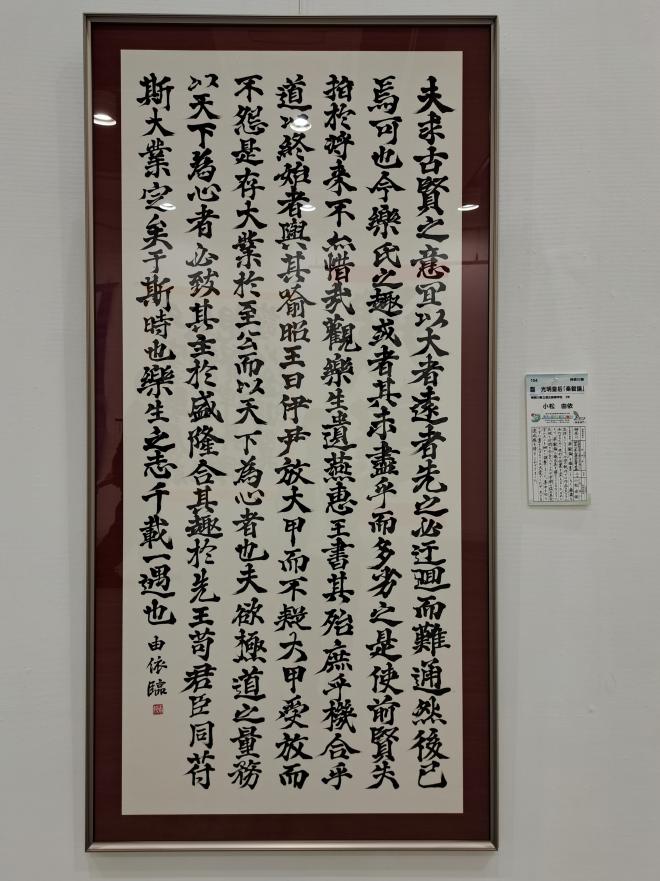 夫求古賢之意宜以大者遠者先之必迂迴而難通然後已
焉可也今樂氏之趣或者其未盡乎而多劣之是使前賢失
指於將来不亦惜哉觀樂生遺燕惠王書其殆庶乎機合乎
道以終始者與其喻昭王曰伊尹放大甲而不疑大甲受放而
不怨是存大業於至公而以天下為心者也夫欲極道之量務
以天下為心者必致其主於盛隆合其趣於先王苟君臣同苻
斯大業定矣于斯時也樂生之志千載一遇也
由依臨
臨 光明皇后「楽毅論」
小松 由依